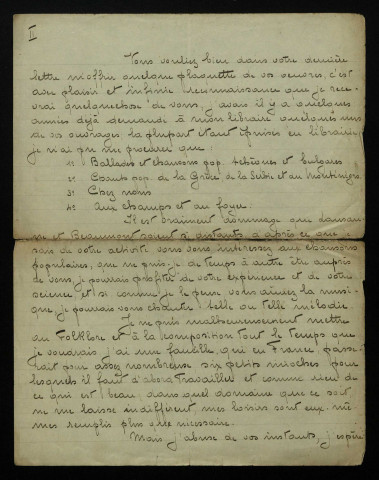 II
Vous vouliez bien dans votre dernière
lettre m'offrir quelque plaquette de vos oeuvres, c'est
avec plaisir et infinie reconnaissance que je rece-
vrai quelquechose de vous, j'avais il y a quelques
années déjà demandé à mon libraire quelques uns
de vos ouvrages la plupart étant épuisés en librairie
je n'ai pu me procurer que :
1° Ballades et chansons pop. tchèques et bulgares
2° Chants pop. de la Grèce de la Serbie et du Monténégro
3° Chez nous
4° Aux champs et au foyer.
Il est vraiment dommage que
et Beaumont soient si distants d'après ce que je
sais de votre activité vous vous intéressez aux chansons
populaires, que ne puis-je de temps à autre être auprès
de vous, je pourrais profiter de votre expérience et de votre
science et si comme je le peux vous aimez la musi-
que, je pourrais vous chanter telle ou telle mélodie
Je ne puis malheureusement mettre
au Folklore et à la composition tout le temps que
je voudrais j'ai une famille qui en France passe-
rait pour assez nombreuse six petits mioches pour
lesquels il faut d'abord travailler et comme rien de
ce qui est beau, dans quel domaine que ce soit
ne me laisse indifférent mes loisirs sont eux-mê-
mes remplis plus que nécessaire.
Mais j'abuse de vos instants, j'espère